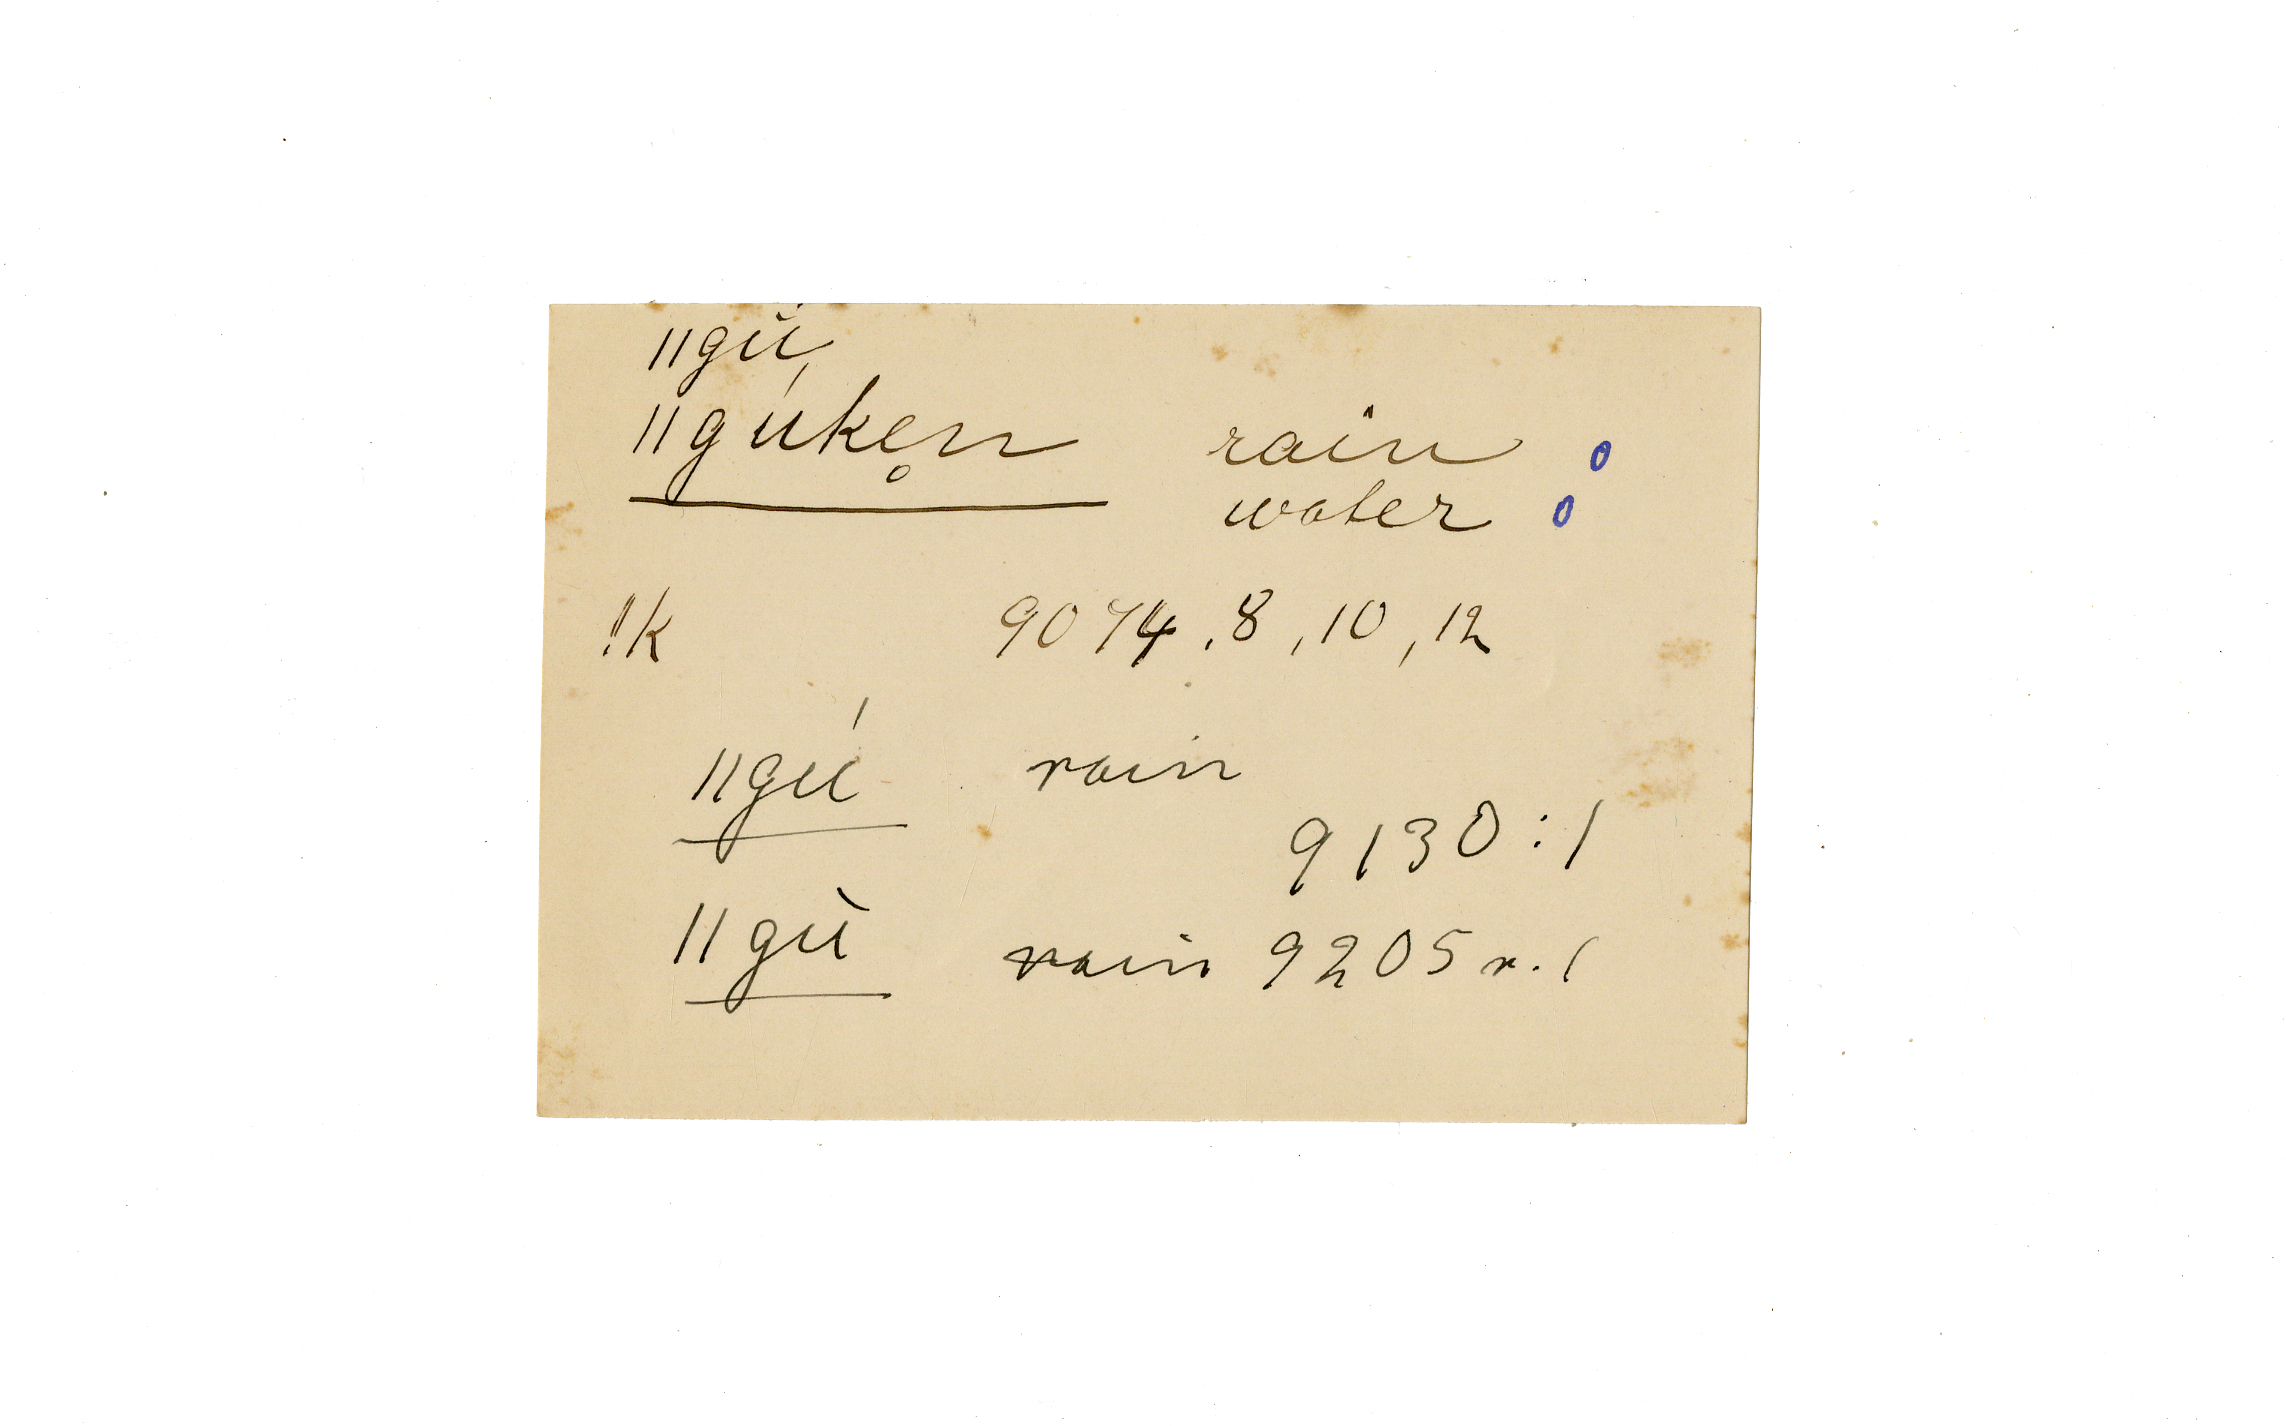 ǁgŭ,
ǁgúken̥ rain
water
!k 9074, 8, 10, 12
ǁgú rain
9130:1
ǁgù rain 9205 r. 1